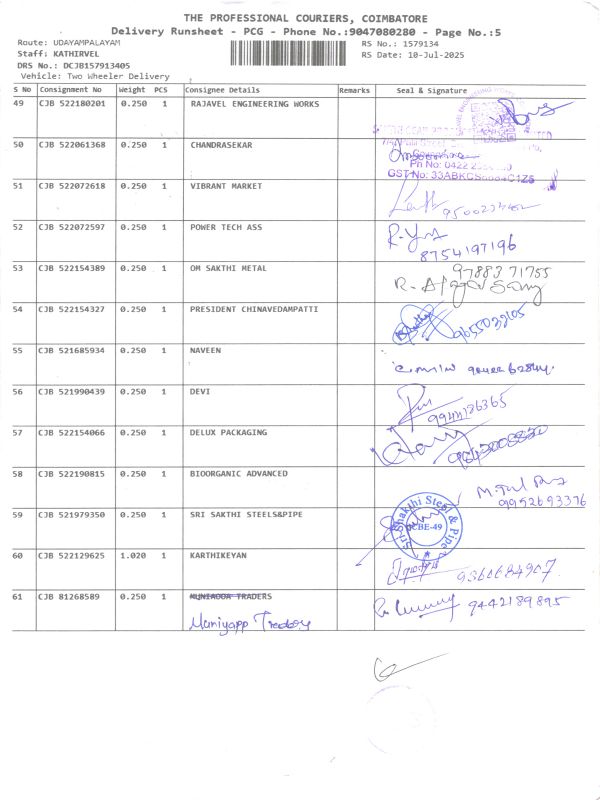 THE PROFESSIONAL COURIERS, COIMBATORE
Delivery Runsheet - PCG - Phone No.:9047080280 - Page No.:5
Route: UDAYAMPALAYAM
RS No.: 1579134
Staff: KATHIRVEL
RS Date: 10-Jul-2025
DRS No.: DCJB157913405
Vehicle: Two Wheeler Delivery
S No Consignment No Weight PCS Consignee Details Remarks Seal & Signature
49 CJB 522180201 0.250 1 RAJAVEL ENGINEERING WORKS
50 CJB 522061368 0.250 1 CHANDRASEKAR
Ph No: 0422
GST No: 33ABKCS
51 CJB 522072618 0.250 1 VIBRANT MARKET
52 CJB 522072597 0.250 1 POWER TECH ASS
8754197196
53 CJB 522154389 0.250 1 OM SAKTHI METAL 97883 71755
54 CJB 522154327 0.250 1 PRESIDENT CHINAVEDAMPATTI
55 CJB 521685934 0.250 1 NAVEEN
56 CJB 521990439 0.250 1 DEVI
57 CJB 522154066 0.250 1 DELUX PACKAGING
58 CJB 522190815 0.250 1 BIOORGANIC ADVANCED
9952693376
59 CJB 521979350 0.250 1 SRI SAKTHI STEELS&PIPE
Sri Shakthi Steel & Pipe
CBE-49
60 CJB 522129625 1.020 1 KARTHIKEYAN 9360684907
61 CJB 81268589 0.250 1 TRADERS 9442189895
Muniyapp Traders